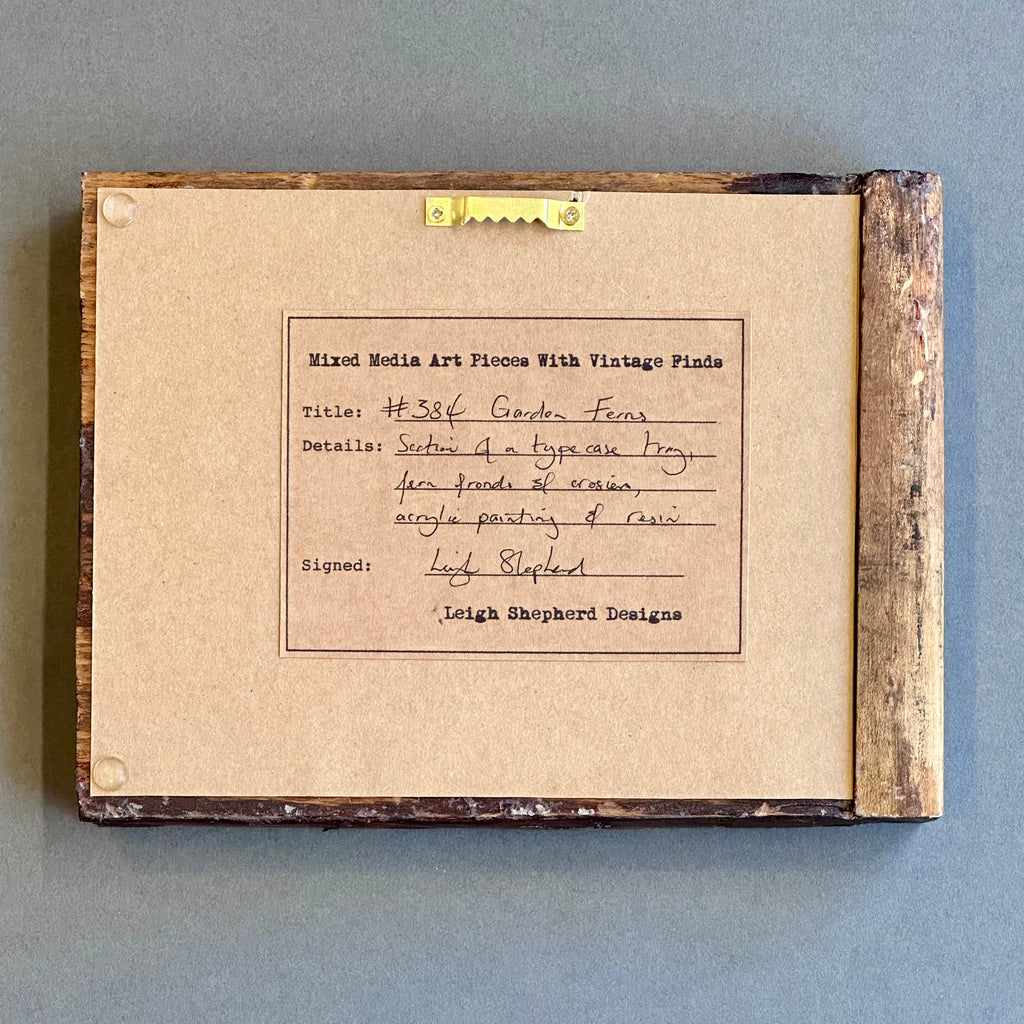 Mixed Media Art Pieces With Vintage Finds
Title: #384 Garden Ferns
Details: Section of a typecase tray,
fern fronds & crosiers,
acrylic painting & resin
Signed: Leigh Shepherd
Leigh Shepherd Designs